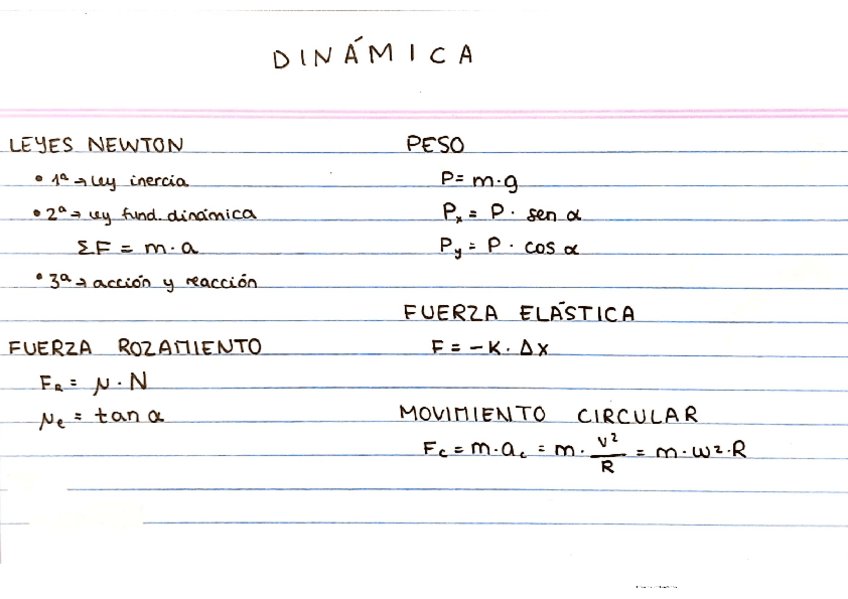 DINÁMICA
LEYES NEWTON
• 1ª → ley inercia
• 2ª → ley fund. dinámica
ΣF = m · a
• 3ª → acción y reacción
FUERZA ROZAMIENTO
F_R = μ · N
μ_e = tan α
PESO
P = m · g
P_x = P · sen α
P_y = P · cos α
FUERZA ELÁSTICA
F = -K · Δx
MOVIMIENTO CIRCULAR
F_c = m · a_c = m · v²/R = m · w² · R